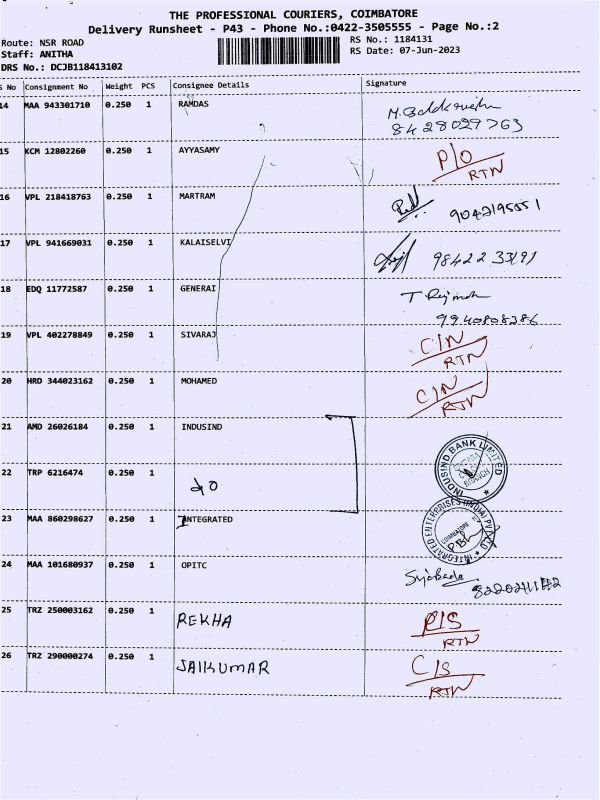 THE PROFESSIONAL COURIERS, COIMBATORE
Delivery Runsheet - P43 - Phone No.:0422-3505555 - Page No.:2
Route: NSR ROAD
RS No.: 1184131
Staff: ANITHA
RS Date: 07-Jun-2023
DRS No.: DCJB118413102
S No Consignment No Weight PCS Consignee Details Signature
14 MAA 943301710 0.250 1 RAMDAS
8428029763
15 KCM 12802260 0.250 1 AYYASAMY P/O
RTN
16 VPL 218418763 0.250 1 MARTRAM 9042195551
17 VPL 941669031 0.250 1 KALAISELVI 98422 33191
18 EDQ 11772587 0.250 1 GENERAI
9940808386
19 VPL 402278849 0.250 1 SIVARAJ C/N
RTN
20 HRD 344023162 0.250 1 MOHAMED C/N
RTN
21 AMD 26026184 0.250 1 INDUSIND
INDUSIND BANK LIMITED
BRANCH
22 TRP 6216474 0.250 1 do
23 MAA 860298627 0.250 1 INTEGRATED
INTEGRATED ENTERPRISES (INDIA) PVT LTD
COIMBATORE
24 MAA 101680937 0.250 1 OPITC
25 TRZ 250003162 0.250 1 REKHA P/S
RTN
26 TRZ 290000274 0.250 1 JAIKUMAR C/S
RTN